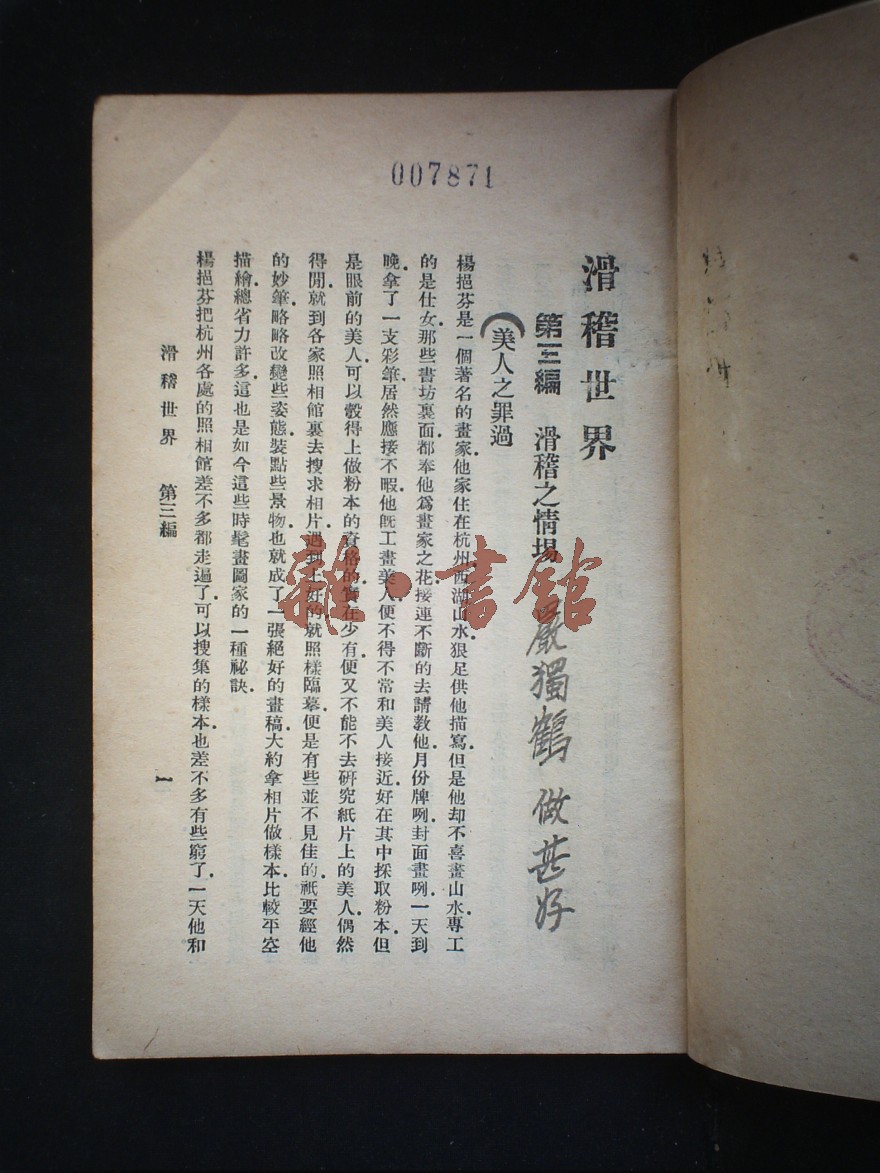 007871
滑稽世界
第三編 滑稽之情場 嚴獨鶴 做甚好
美人之罪過
楊挹芬是一個著名的畫家他家住在杭州西湖山水狠足供他描寫但是他却不喜畫山水專工
的是仕女那些書坊裏面都奉他爲畫家之花接連不斷的去請教他月份牌咧封面畫咧一天到
晚拿了一支彩筆居然應接不暇他旣工畫美人便不得不常和美人接近好在其中採取粉本但
是眼前的美人可以彀得上做粉本的資格的實在少有便又不能不去硏究紙片上的美人偶然
得閒就到各家照相館裏去搜求相片遇到上好的就照樣臨摹便是有些並不見佳的祇要經他
的妙筆略略改變些姿態裝點些景物也就成了一張絕好的畫稿大約拿相片做樣本比較平空
描繪總省力許多這也是如今這些時髦畫圖家的一種祕訣
楊挹芬把杭州各處的照相館差不多都走遍了可以搜集的樣本也差不多有些窮了一天他和
滑稽世界 第三編
一
雜·書館